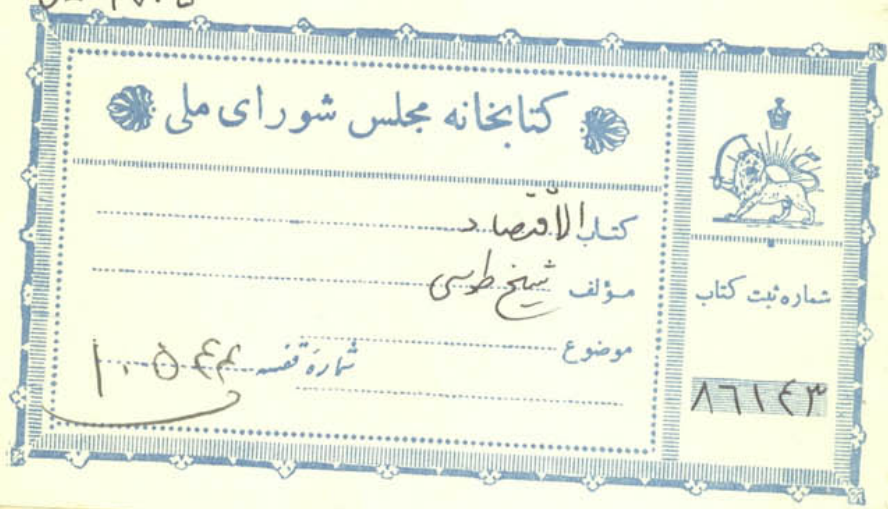 کتابخانه مجلس شورای ملی
کتاب الاقتصاد
مؤلف شیخ طوسی
موضوع
شمارهٔ قفسه ۱۰۵۴۴
شماره ثبت کتاب
۸۶۱۴۳